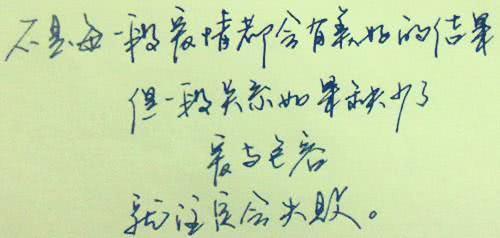 不是每一段爱情都会有美好的结果
但一段关系如果缺少了
爱与包容
就注定会失败。